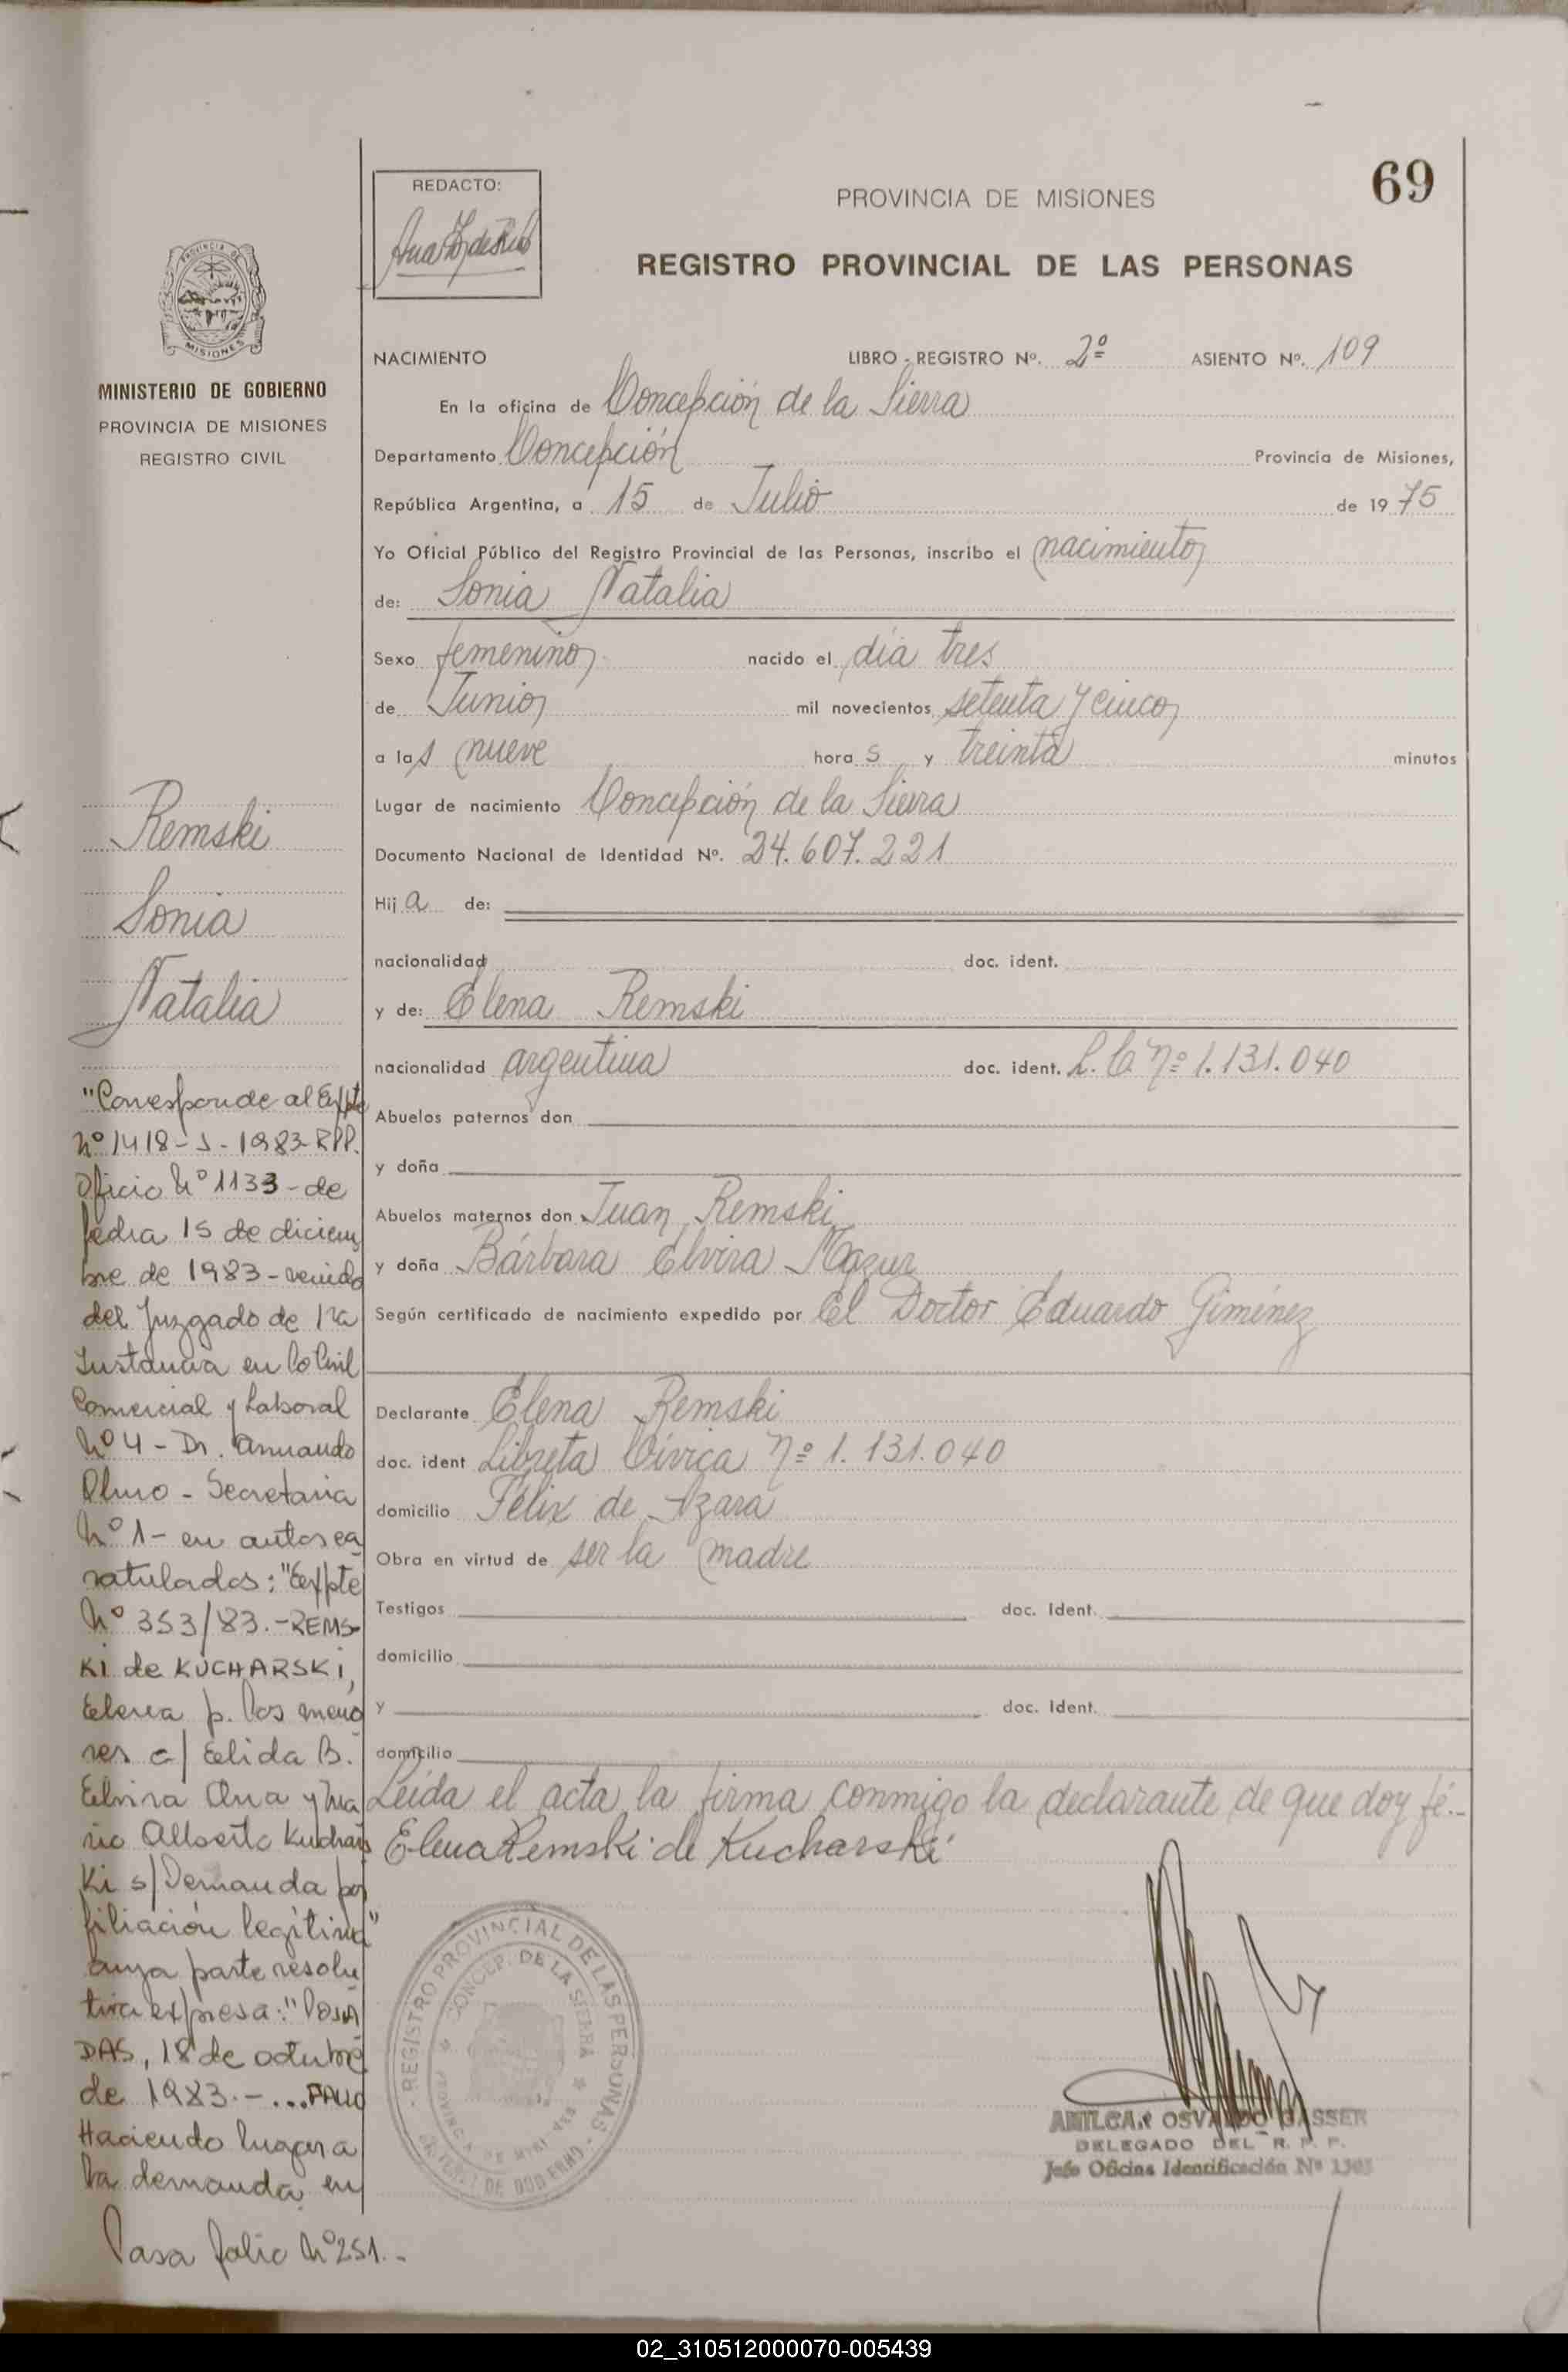 69
REDACTO:
PROVINCIA DE MISIONES
REGISTRO PROVINCIAL DE LAS PERSONAS
PROVINCIA DE
MISIONES
MINISTERIO DE GOBIERNO
PROVINCIA DE MISIONES
REGISTRO CIVIL
NACIMIENTO LIBRO - REGISTRO Nº. 2º ASIENTO Nº. 109
En la oficina de Concepción de la Sierra
Departamento Concepción Provincia de Misiones,
República Argentina, a 15 de Julio de 1975
Yo Oficial Público del Registro Provincial de las Personas, inscribo el nacimiento
de: Sonia Natalia
Sexo femenino nacido el día tres
de Junio mil novecientos setenta y cinco
a las nueve horas y treinta minutos
Lugar de nacimiento Concepción de la Sierra
Documento Nacional de Identidad Nº. 24.607.221
Hija de:
nacionalidad doc. ident.
y de: Elena Remski
nacionalidad argentina doc. ident. L.C. nº 1.131.040
Abuelos paternos don
y doña
Abuelos maternos don Juan Remski
y doña Bárbara Elvira Mazur
Según certificado de nacimiento expedido por El Doctor Eduardo Giménez
Declarante Elena Remski
doc. ident Libreta Cívica nº 1.131.040
domicilio Félix de Azara
Obra en virtud de ser la madre
Testigos doc. Ident.
domicilio
y doc. Ident.
domicilio
Leída el acta la firma conmigo la declarante de que doy fé.-
Elena Remski de Kucharski
REGISTRO PROVINCIAL DE LAS PERSONAS
CONCEP. DE LA SIERRA
AMILCAR OSVALDO GASSER
DELEGADO DEL R. P. P.
Jefe Oficina Identificación Nº
Remski
Sonia
Natalia
"Corresponde al Expte
Nº 1418-S-1983-RPP.
Oficio Nº 1133-de
fecha 15 de diciem
bre de 1983-venido
del Juzgado de 1ra
Instancia en lo Civil
Comercial y Laboral
Nº 4 - Dr. Armando
Olmo - Secretaria
Nº 1- en autos ca
ratulados: "Expte
Nº 353/83.-REMS-
KI de KUCHARSKI,
Elena p. los meno
res c/ Elida B.
Elvira Ana y Ma
rio Alberto Kuchars
ki s/ Demanda por
filiación legítima"
cuya parte resolu
tiva expresa: "POSA
DAS, 18 de octubre
de 1983.-...FALLO
Haciendo lugar a
la demanda en
Pasa folio Nº 251.-
02_310512000070-005439